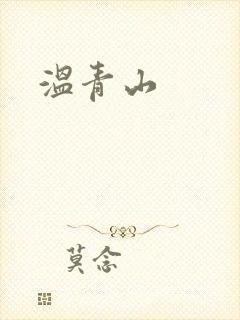 温青山
莫念